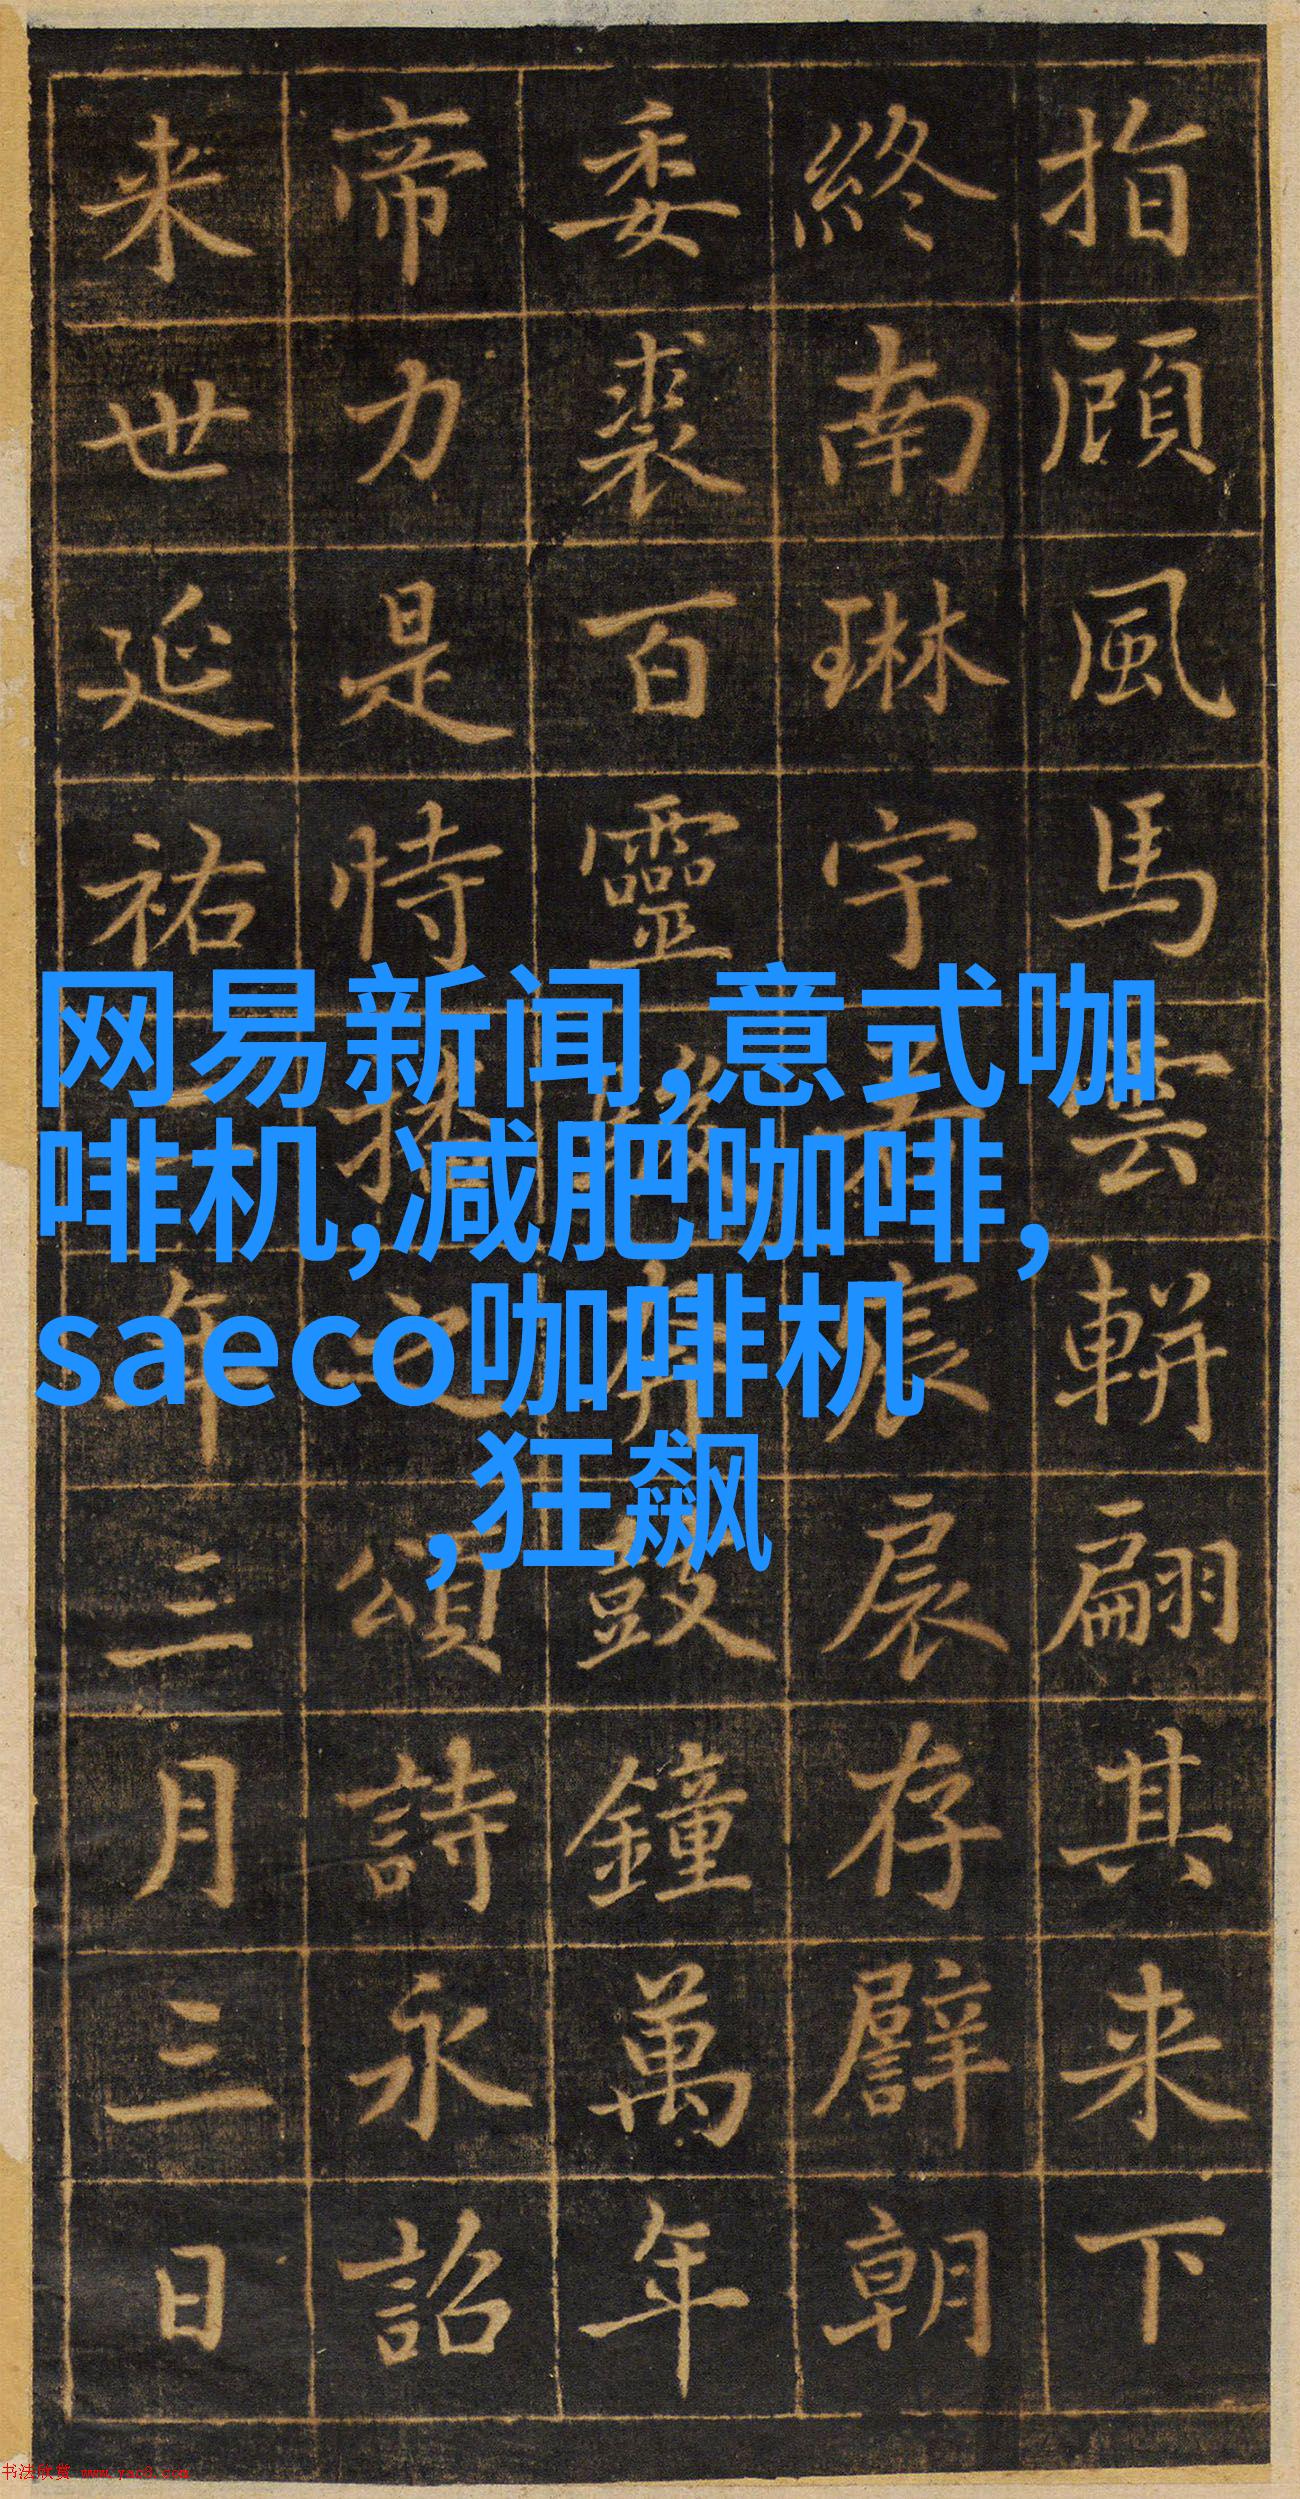 指顧風馬雲軿翩其来下
終南琳宇宸扆存朝
委裘百靈鼓鐘萬年
帝力是恃播之頌詩永詔
来世延祐年三月三日
网易新闻,意式咖
啡机,减肥咖啡,
saeco咖啡机
,狂飙
书法欣赏 www.yac8.com